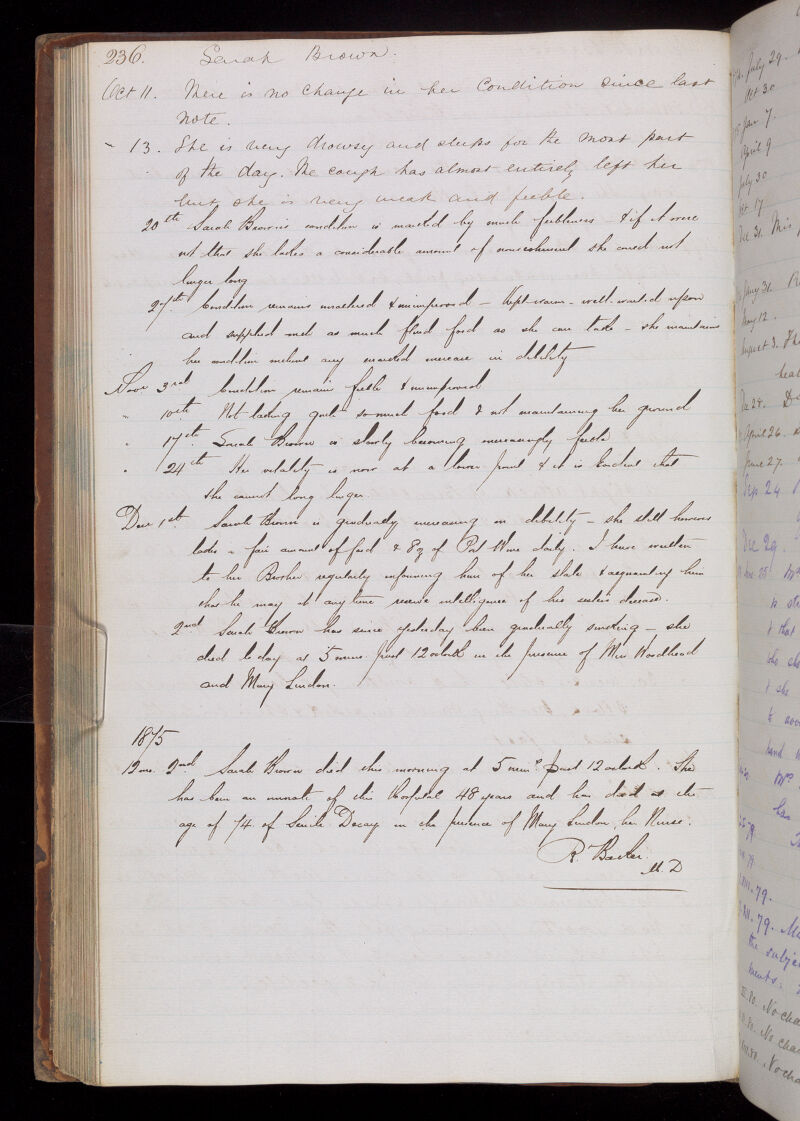 236. Sarah Brown.
Oct 11. There is no change in her Condition since last
note.
- 13. She is very drowsy and sleeps for the most part
of the day. The cough has almost entirely left her
but she is very weak and feeble.
20th Sarah Brown's condition is marked by much feebleness - & if it were
not that she takes a considerable amount of nourishment she could not
linger long
27th Condition remains unaltered & unimproved - Kept warm - well waited upon
and supplied with as much fluid food as she can take - she maintains
her condition without any marked increase in debility
Novr 3rd Condition remains feeble & unimproved
" 10th Not taking quite so much food & not maintaining her ground
" 17th Sarah Brown is slowly becoming increasingly feeble
" 24th Her vitality is now at a lower point & it is Evident that
she cannot long linger
Decr 1st Sarah Brown is gradually increasing in debility - she still however
takes a fair amount of food & 8oz of Port Wine daily. I have written
to her Brother regularly informing him of her state & acquainting him
that he may at any time receive intelligence of his sister's decease.
2nd Sarah Brown has since yesterday been gradually sinking - she
died to day at 5 mins past 12 oclock in the presence of Mrs Woodhead
and Mary Lindon.
1875
12mo. 2nd Sarah Brown died this morning at 5 mins past 12 oclock. She
has been an inmate of this Hospital 48 years and has died at the
age of 74 of Senile Decay in the presence of Mary Lindon, her Nurse.
R. Baker.
M.D
July 29.
Oct 30
Jan 7.
April 9
July 30
Oct 17
Dec 31.
Jany 31.
May 12.
August 3.
Dec 28.
April 26.
June 27.
Sep 24
Dec 29.
79.
79. 
the subje
ments.
80. No cha
80. No cha
80. No cha